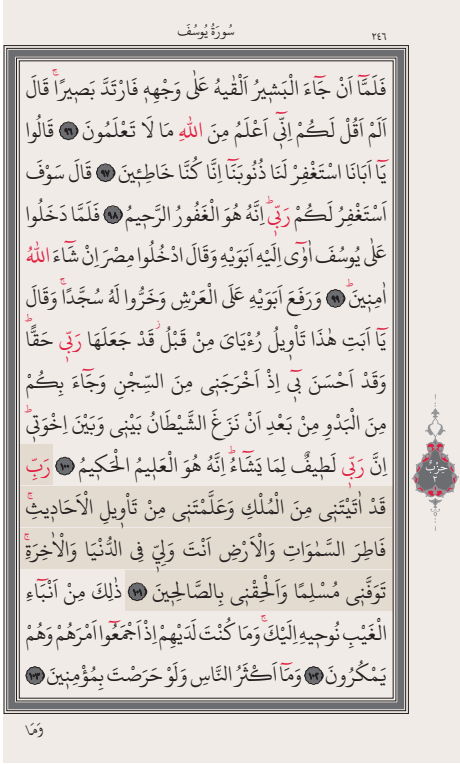 سُورَةُ يُوسُفَ
٢٤٦
فَلَمَّٓا اَنْ جَٓاءَ الْبَشٖيرُ اَلْقٰيهُ عَلٰى وَجْهِهٖ فَارْتَدَّ بَصٖيرًاۚ قَالَ
اَلَمْ اَقُلْ لَكُمْ اِنّٖٓي اَعْلَمُ مِنَ اللّٰهِ مَا لَا تَعْلَمُونَ ٩٦ قَالُوا
يَٓا اَبَانَا اسْتَغْفِرْ لَنَا ذُنُوبَنَٓا اِنَّا كُنَّا خَاطِـٖٔينَ ٩٧ قَالَ سَوْفَ
اَسْتَغْفِرُ لَكُمْ رَبّٖيۜ اِنَّهُ هُوَ الْغَفُورُ الرَّحٖيمُ ٩٨ فَلَمَّا دَخَلُوا
عَلٰى يُوسُفَ اٰوٰٓى اِلَيْهِ اَبَوَيْهِ وَقَالَ ادْخُلُوا مِصْرَ اِنْ شَٓاءَ اللّٰهُ
اٰمِنٖينَۜ ٩٩ وَرَفَعَ اَبَوَيْهِ عَلَى الْعَرْشِ وَخَرُّوا لَهُ سُجَّدًاۚ وَقَالَ
يَٓا اَبَتِ هٰذَا تَأْوٖيلُ رُءْيَايَ مِنْ قَبْلُۘ قَدْ جَعَلَهَا رَبّٖي حَقًّاۜ
وَقَدْ اَحْسَنَ بٖٓي اِذْ اَخْرَجَنٖي مِنَ السِّجْنِ وَجَٓاءَ بِكُمْ
مِنَ الْبَدْوِ مِنْ بَعْدِ اَنْ نَزَغَ الشَّيْطَانُ بَيْنٖي وَبَيْنَ اِخْوَتٖيۜ
اِنَّ رَبّٖي لَطٖيفٌ لِمَا يَشَٓاءُۜ اِنَّهُ هُوَ الْعَلٖيمُ الْحَكٖيمُ ١٠٠ رَبِّ
قَدْ اٰتَيْتَنٖي مِنَ الْمُلْكِ وَعَلَّمْتَنٖي مِنْ تَأْوٖيلِ الْاَحَادٖيثِۚ
فَاطِرَ السَّمٰوَاتِ وَالْاَرْضِ اَنْتَ وَلِيّٖ فِي الدُّنْيَا وَالْاٰخِرَةِۚ
تَوَفَّنٖي مُسْلِمًا وَاَلْحِقْنٖي بِالصَّالِحٖينَ ١٠١ ذٰلِكَ مِنْ اَنْبَٓاءِ
الْغَيْبِ نُوحٖيهِ اِلَيْكَۚ وَمَا كُنْتَ لَدَيْهِمْ اِذْ اَجْمَعُٓوا اَمْرَهُمْ وَهُمْ
يَمْكُرُونَ ١٠٢ وَمَٓا اَكْثَرُ النَّاسِ وَلَوْ حَرَصْتَ بِمُؤْمِنٖينَ ١٠٣
حِزْبُ
٢
وَمَا